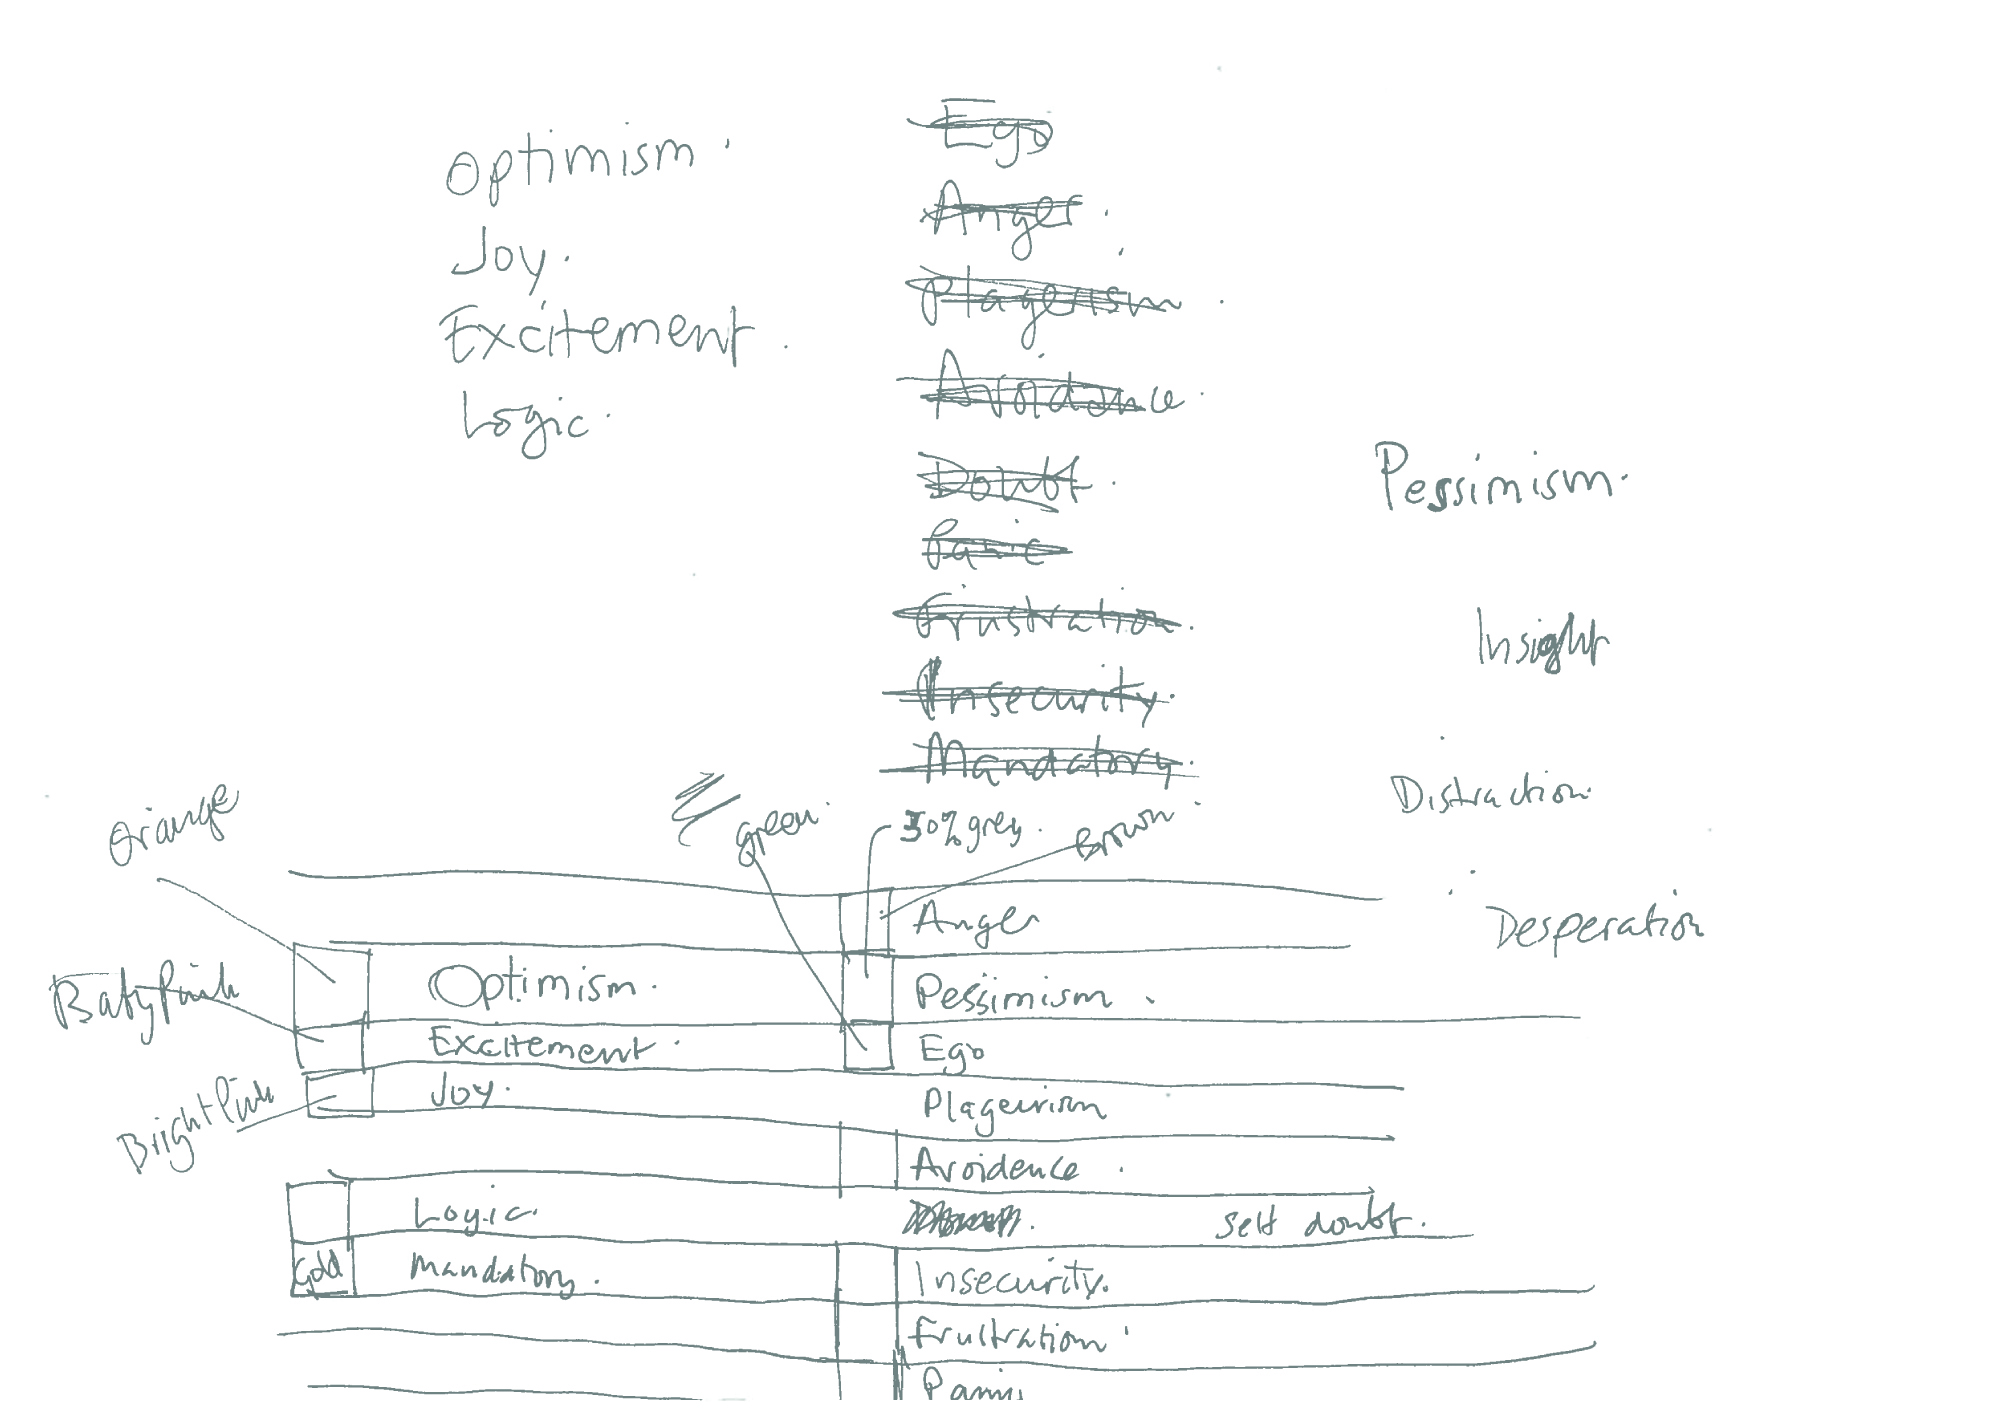 Optimism.
Joy.
Excitement.
Logic.
Ego
Anger.
Plagerism.
Avoidance.
Doubt.
Panic
Frustration.
Insecurity.
Mandatory.
Pessimism.
Insight
Distraction.
Desperation
Orange
green.
50% grey.
Brown.
Baby Pink
Bright Pink
Anger
Optimism. Pessimism.
Excitement. Ego
Joy. Plageurism
Avoidence.
Logic. Self doubt.
Gold Mandatory. Insecurity.
Frustration.